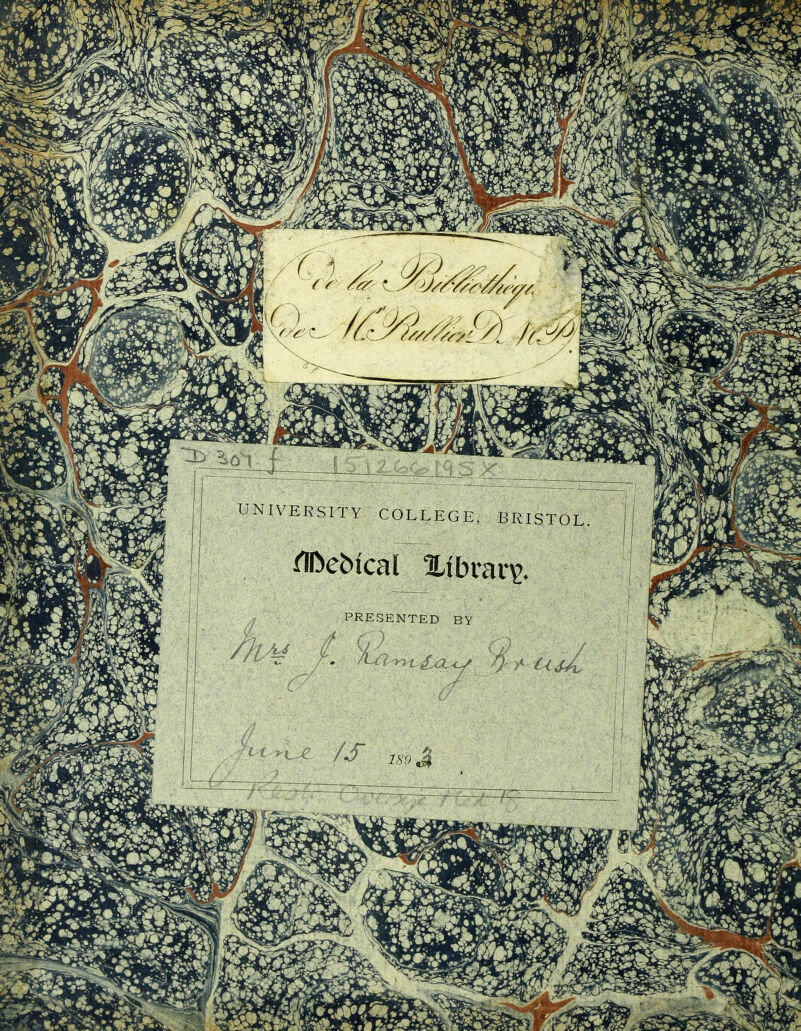 de la Bibliothèqu
de Mr. Rullier D. M. P.
D 307 f 151266195X
UNIVERSITY COLLEGE, BRISTOL.
Medical Library.
PRESENTED BY
Mrs J. Ramsay Brush
June 15 1893
Rest.